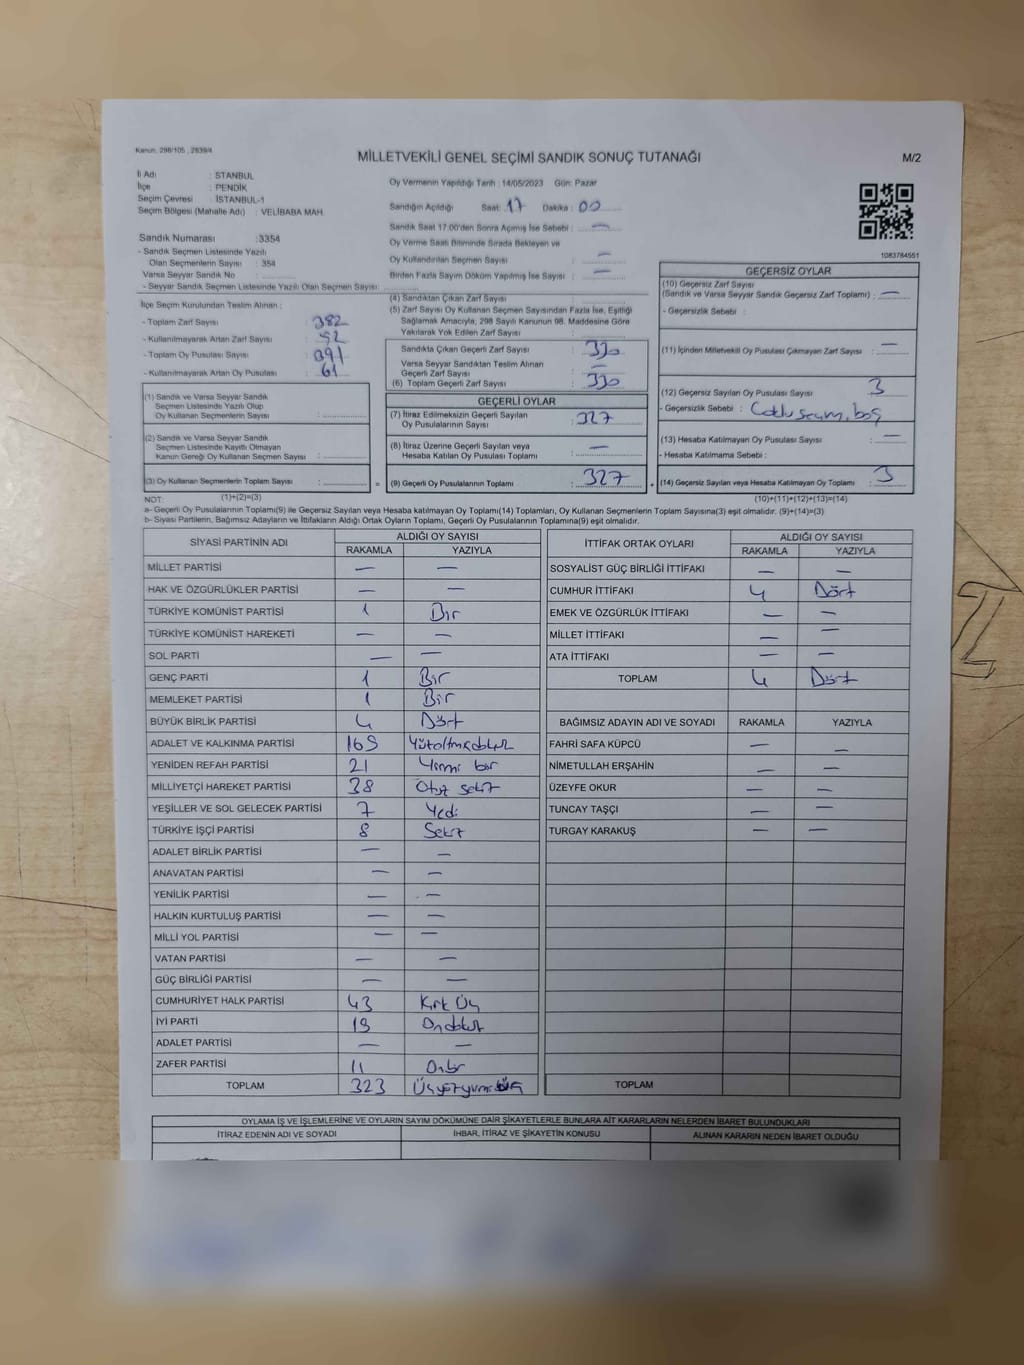 Kanun: 298/105 , 2839/4
MİLLETVEKİLİ GENEL SEÇİMİ SANDIK SONUÇ TUTANAĞI
M/2
İl Adı : İSTANBUL
İlçe : PENDİK
Seçim Çevresi : İSTANBUL-1
Seçim Bölgesi (Mahalle Adı) : VELİBABA MAH.
Oy Vermenin Yapıldığı Tarih : 14/05/2023 Gün: Pazar
Sandığın Açıldığı Saat: 17 Dakika : 00
Sandık Saat 17:00'den Sonra Açılmış İse Sebebi : —
Oy Verme Saati Bitiminde Sırada Bekleyen ve
Oy Kullandırılan Seçmen Sayısı : —
Birden Fazla Sayım Döküm Yapılmış İse Sayısı : —
1083784551
Sandık Numarası :3354
- Sandık Seçmen Listesinde Yazılı
Olan Seçmenlerin Sayısı : 354
Varsa Seyyar Sandık No :
- Seyyar Sandık Seçmen Listesinde Yazılı Olan Seçmen Sayısı :
İlçe Seçim Kurulundan Teslim Alınan :
- Toplam Zarf Sayısı : 382
- Kullanılmayarak Artan Zarf Sayısı : 52
- Toplam Oy Pusulası Sayısı : 391
- Kullanılmayarak Artan Oy Pusulası : 61
(1) Sandık ve Varsa Seyyar Sandık
Seçmen Listesinde Yazılı Olup
Oy Kullanan Seçmenlerin Sayısı :
(2) Sandık ve Varsa Seyyar Sandık
Seçmen Listesinde Kayıtlı Olmayan
Kanun Gereği Oy Kullanan Seçmen Sayısı :
(3) Oy Kullanan Seçmenlerin Toplam Sayısı :
(4) Sandıktan Çıkan Zarf Sayısı :
(5) Zarf Sayısı Oy Kullanan Seçmen Sayısından Fazla İse, Eşitliği
Sağlamak Amacıyla, 298 Sayılı Kanunun 98. Maddesine Göre
Yakılarak Yok Edilen Zarf Sayısı :
Sandıkta Çıkan Geçerli Zarf Sayısı : 330
Varsa Seyyar Sandıktan Teslim Alınan
Geçerli Zarf Sayısı : —
(6) Toplam Geçerli Zarf Sayısı : 330
GEÇERLİ OYLAR
(7) İtiraz Edilmeksizin Geçerli Sayılan
Oy Pusulalarının Sayısı : 327
(8) İtiraz Üzerine Geçerli Sayılan veya
Hesaba Katılan Oy Pusulası Toplamı : —
= (9) Geçerli Oy Pusulalarının Toplamı : 327 +
GEÇERSİZ OYLAR
(10) Geçersiz Zarf Sayısı
(Sandık ve Varsa Seyyar Sandık Geçersiz Zarf Toplamı) : —
- Geçersizlik Sebebi :
(11) İçinden Milletvekili Oy Pusulası Çıkmayan Zarf Sayısı : —
(12) Geçersiz Sayılan Oy Pusulası Sayısı : 3
- Geçersizlik Sebebi : Çoklu seçim, boş
(13) Hesaba Katılmayan Oy Pusulası Sayısı : —
- Hesaba Katılmama Sebebi :
(14) Geçersiz Sayılan veya Hesaba Katılmayan Oy Toplamı : 3
NOT: (1)+(2)=(3) (10)+(11)+(12)+(13)=(14)
a- Geçerli Oy Pusulaları Toplamı(9) ile Geçersiz Sayılan veya Hesaba katılmayan Oy Toplamı(14) Toplamları, Oy Kullanan Seçmenlerin Toplam Sayısına(3) eşit olmalıdır. (9)+(14)=(3)
b- Siyasi Partilerin, Bağımsız Adayların ve İttifakların Aldığı Ortak Oyların Toplamı, Geçerli Oy Pusulalarının Toplamına(9) eşit olmalıdır.
SİYASİ PARTİNİN ADI ALDIĞI OY SAYISI
RAKAMLA YAZIYLA
MİLLET PARTİSİ — —
HAK VE ÖZGÜRLÜKLER PARTİSİ — —
TÜRKİYE KOMÜNİST PARTİSİ 1 Bir
TÜRKİYE KOMÜNİST HAREKETİ — —
SOL PARTİ — —
GENÇ PARTİ 1 Bir
MEMLEKET PARTİSİ 1 Bir
BÜYÜK BİRLİK PARTİSİ 4 Dört
ADALET VE KALKINMA PARTİSİ 169 Yüzaltmışdokuz
YENİDEN REFAH PARTİSİ 21 Yirmi bir
MİLLİYETÇİ HAREKET PARTİSİ 38 Otuz sekiz
YEŞİLLER VE SOL GELECEK PARTİSİ 7 Yedi
TÜRKİYE İŞÇİ PARTİSİ 8 Sekiz
ADALET BİRLİK PARTİSİ — —
ANAVATAN PARTİSİ — —
YENİLİK PARTİSİ — —
HALKIN KURTULUŞ PARTİSİ — —
MİLLİ YOL PARTİSİ — —
VATAN PARTİSİ — —
GÜÇ BİRLİĞİ PARTİSİ — —
CUMHURİYET HALK PARTİSİ 43 Kırk Üç
İYİ PARTİ 19 Ondokuz
ADALET PARTİSİ — —
ZAFER PARTİSİ 11 Onbir
TOPLAM 323 Üçyüzyirmiüç
İTTİFAK ORTAK OYLARI ALDIĞI OY SAYISI
RAKAMLA YAZIYLA
SOSYALİST GÜÇ BİRLİĞİ İTTİFAKI — —
CUMHUR İTTİFAKI 4 Dört
EMEK VE ÖZGÜRLÜK İTTİFAKI — —
MİLLET İTTİFAKI — —
ATA İTTİFAKI — —
TOPLAM 4 Dört
BAĞIMSIZ ADAYIN ADI VE SOYADI RAKAMLA YAZIYLA
FAHRİ SAFA KÜPCÜ — —
NİMETULLAH ERŞAHİN — —
ÜZEYFE OKUR — —
TUNCAY TAŞÇI — —
TURGAY KARAKUŞ — —
TOPLAM
OYLAMA İŞ VE İŞLEMLERİNE VE OYLARIN SAYIM DÖKÜMÜNE DAİR ŞİKAYETLERLE BUNLARA AİT KARARLARIN NELERDEN İBARET BULUNDUKLARI
İTİRAZ EDENİN ADI VE SOYADI İHBAR, İTİRAZ VE ŞİKAYETİN KONUSU ALINAN KARARIN NEDEN İBARET OLDUĞU